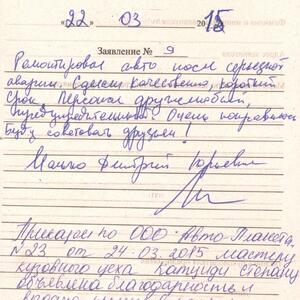 «22» 03 2015
Заявление № 9
Ремонтировал авто после серьезной
аварии. Сделали качественно, короткий
срок. Персонал дружелюбный,
предупредительный. Очень понравилось
Буду советовать друзьям!
Дмитрий Юрьевич
Приказом по ООО "Авто Планета"
№23 от 24-03-2015 мастеру
кузовного цеха Катунди Степану
объявлена благодарность и